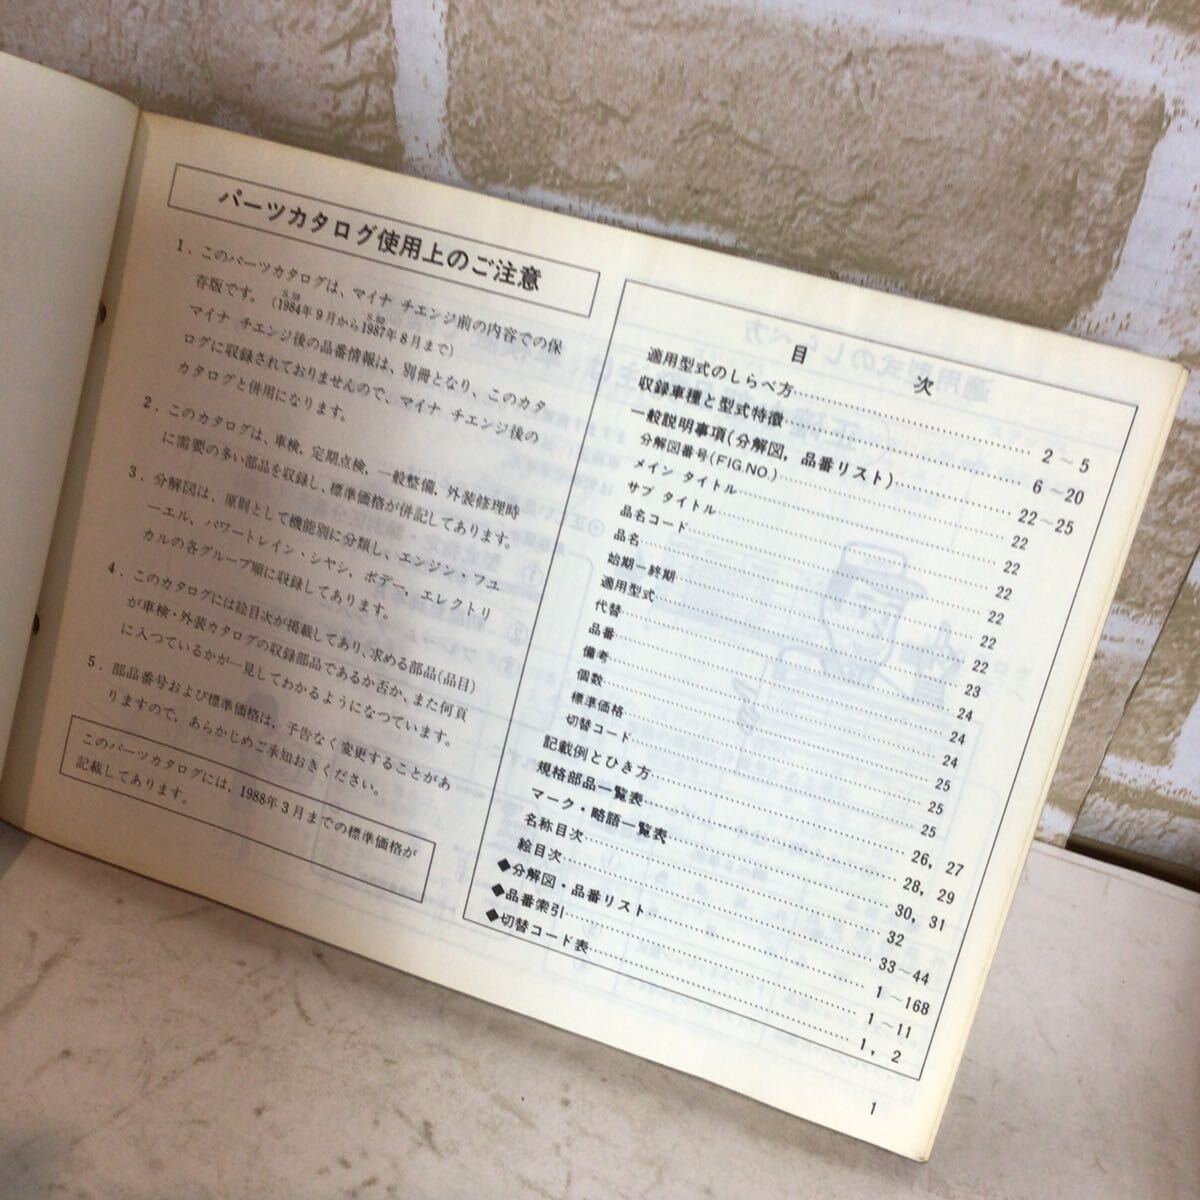 パーツカタログ使用上のご注意
1．このパーツカタログは、マイナ チエンジ前の内容での保
存版です。（1984年9月から1987年8月まで）
S.59 S.62
マイナ チエンジ後の品番情報は、別冊となり、このカタ
ログに収録されておりませんので、マイナ チエンジ後の
カタログと併用になります。
2．このカタログは、車検、定期点検、一般整備、外装修理時
に需要の多い部品を収録し、標準価格が併記してあります。
3．分解図は、原則として機能別に分類し、エンジン・フユ
ーエル、パワートレイン・シヤシ、ボデー、エレクトリ
カルの各グループ順に収録してあります。
4．このカタログには絵目次が掲載してあり、求める部品(品目)
が車検・外装カタログの収録部品であるか否か、また何頁
に入つているかが一見してわかるようになつています。
5．部品番号および標準価格は、予告なく変更することがあ
りますので、あらかじめご承知おきください。
このパーツカタログには、1988年3月までの標準価格が
記載してあります。
目 次
適用型式のしらべ方 2～5
収録車種と型式特徴 6～20
一般説明事項(分解図，品番リスト) 22～25
分解図番号(FIG.NO.) 22
メイン タイトル 22
サブ タイトル 22
品名コード 22
品名 22
始期ー終期 22
適用型式 23
代替 24
品番 24
備考 24
個数 25
標準価格 25
切替コード 25
記載例とひき方 26，27
規格部品一覧表 28，29
マーク・略語一覧表 30，31
名称目次 32
絵目次 33～44
◆分解図・品番リスト 1～168
◆品番索引 1～11
◆切替コード表 1，2
1